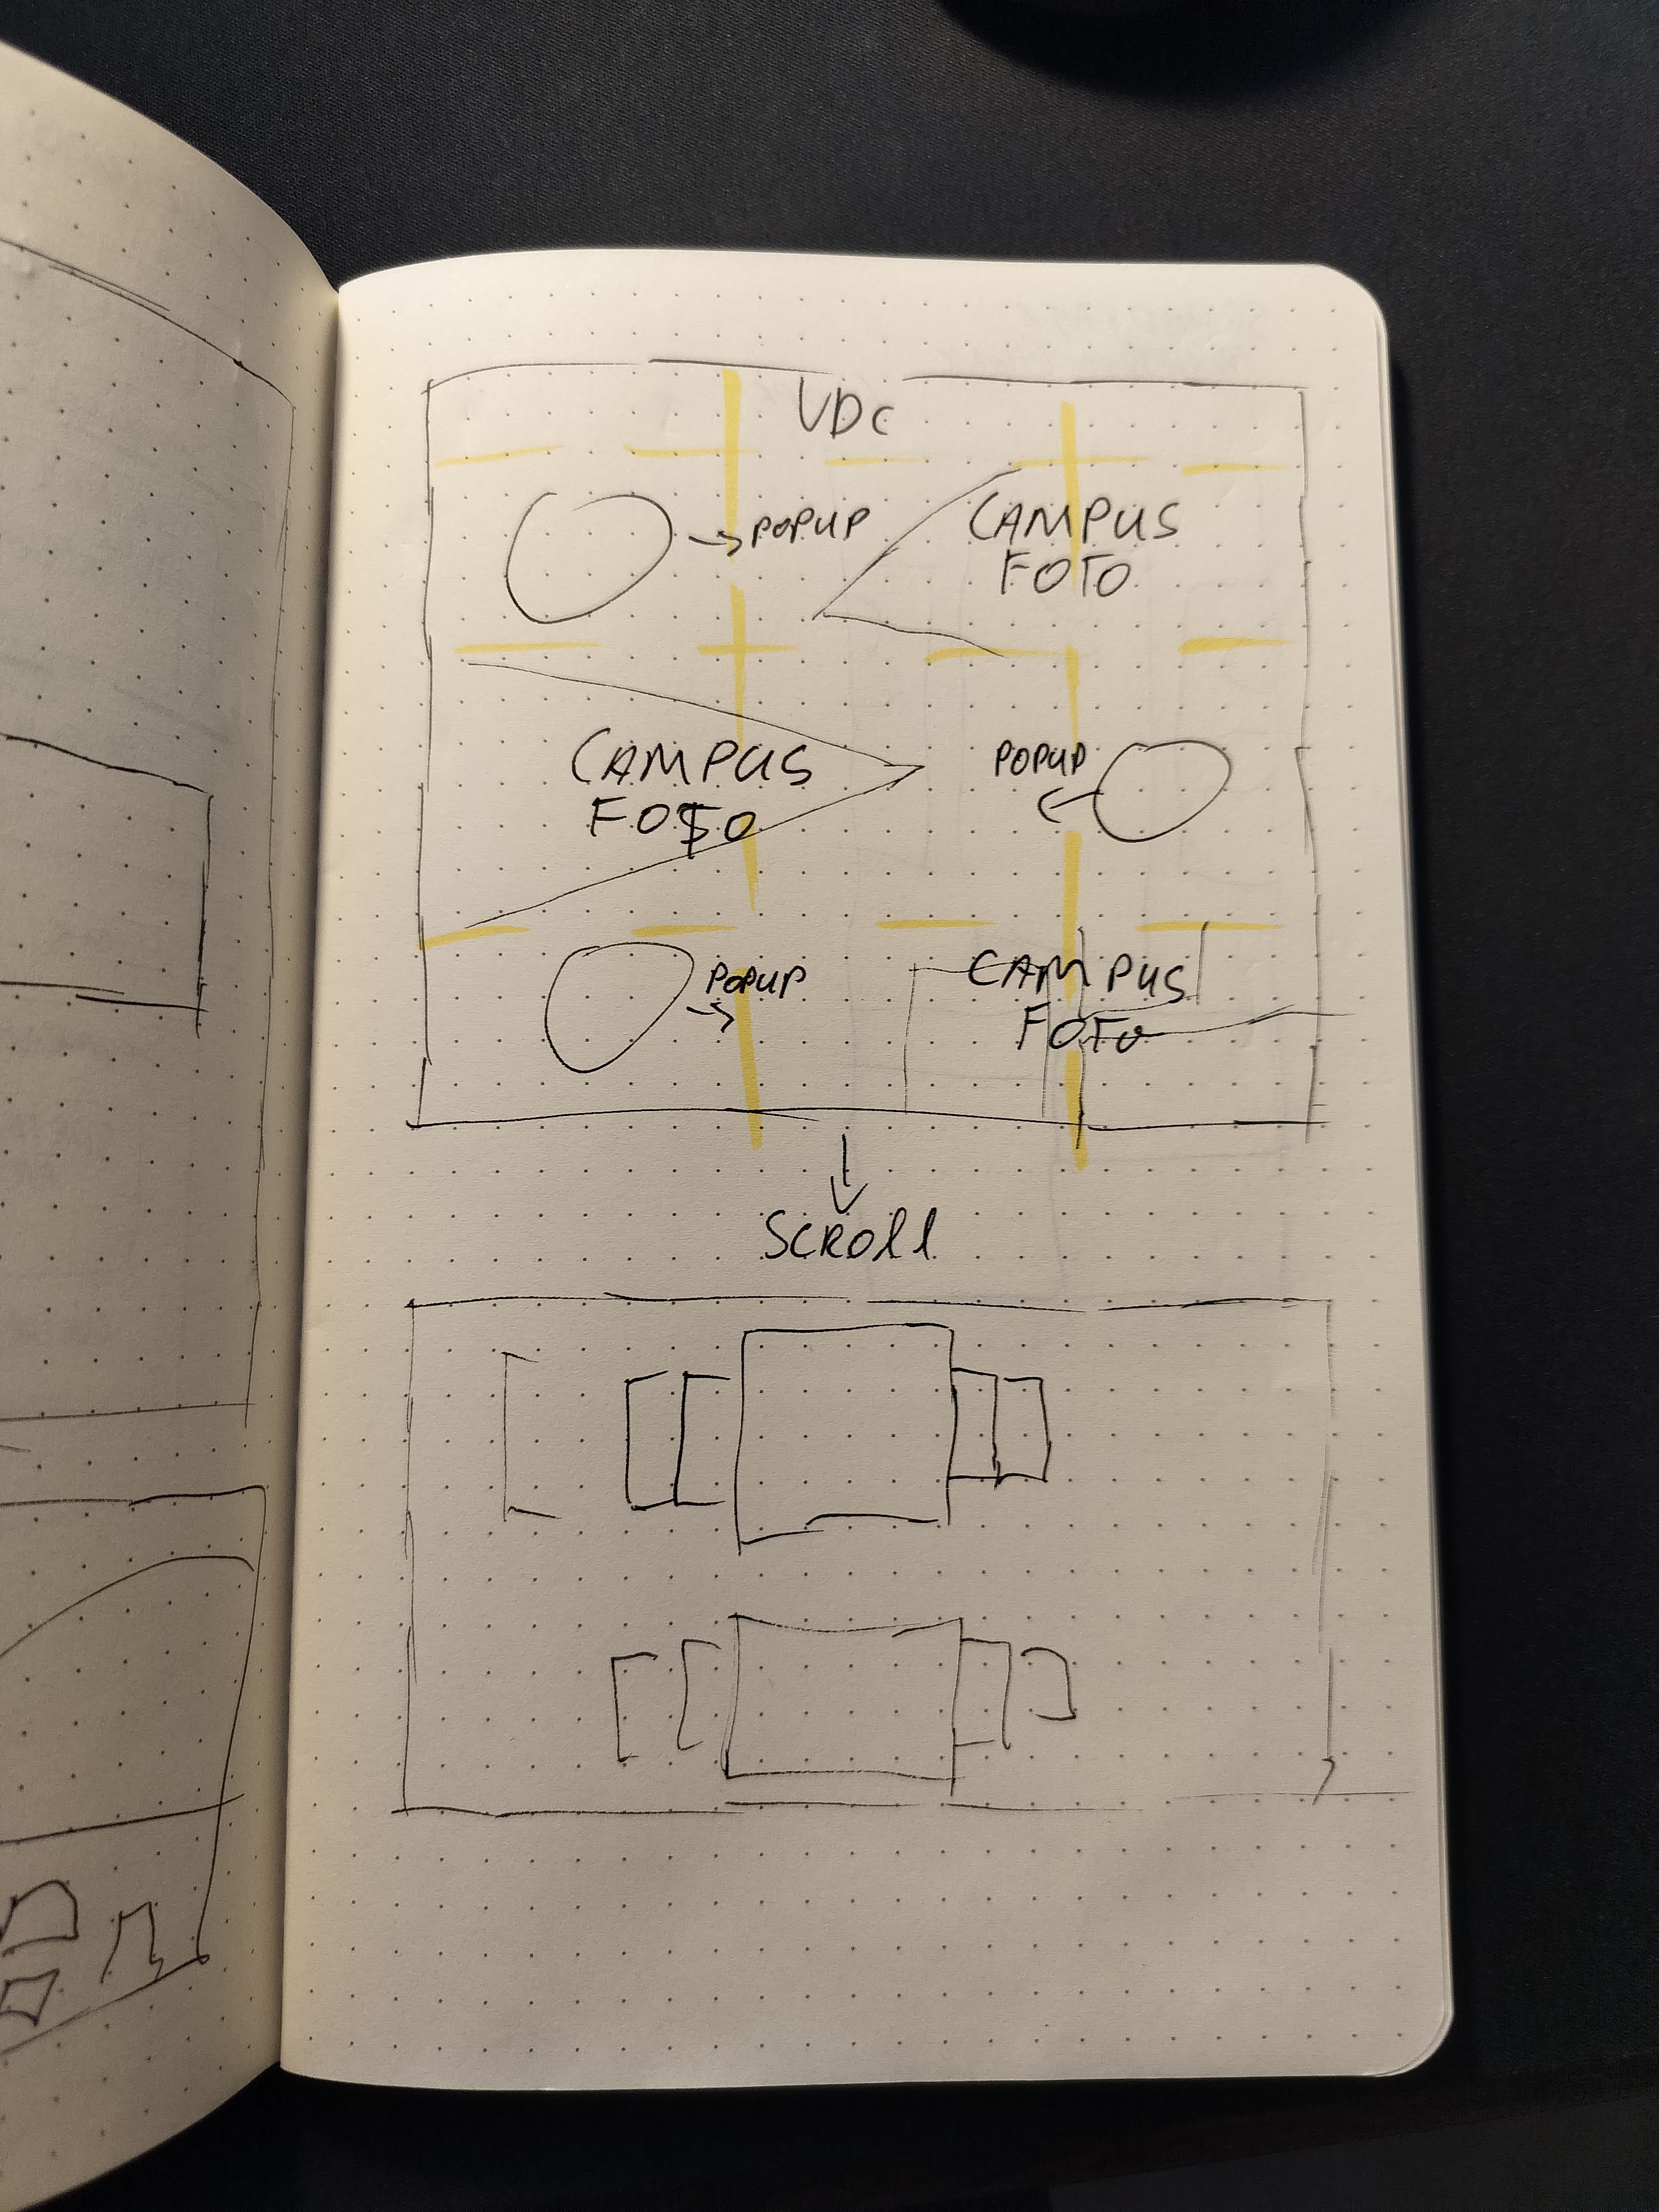 VDC
→POPUP
CAMPUS
FOTO
CAMPUS
FOTO
POPUP
←
POPUP
→
CAMPUS
FOTO
↓
SCROLL